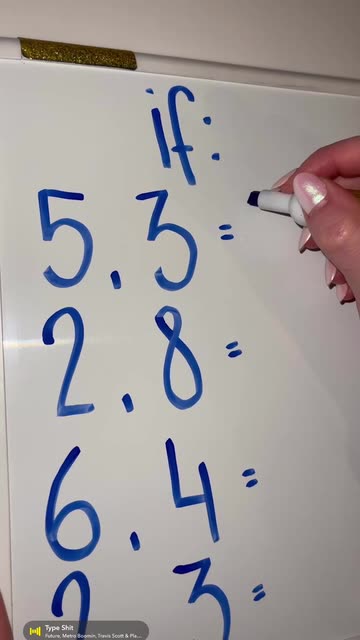 if:
5.3=
2.8=
6.4=
2 3=
Type Shit
Future, Metro Boomin, Travis Scott & Pla...